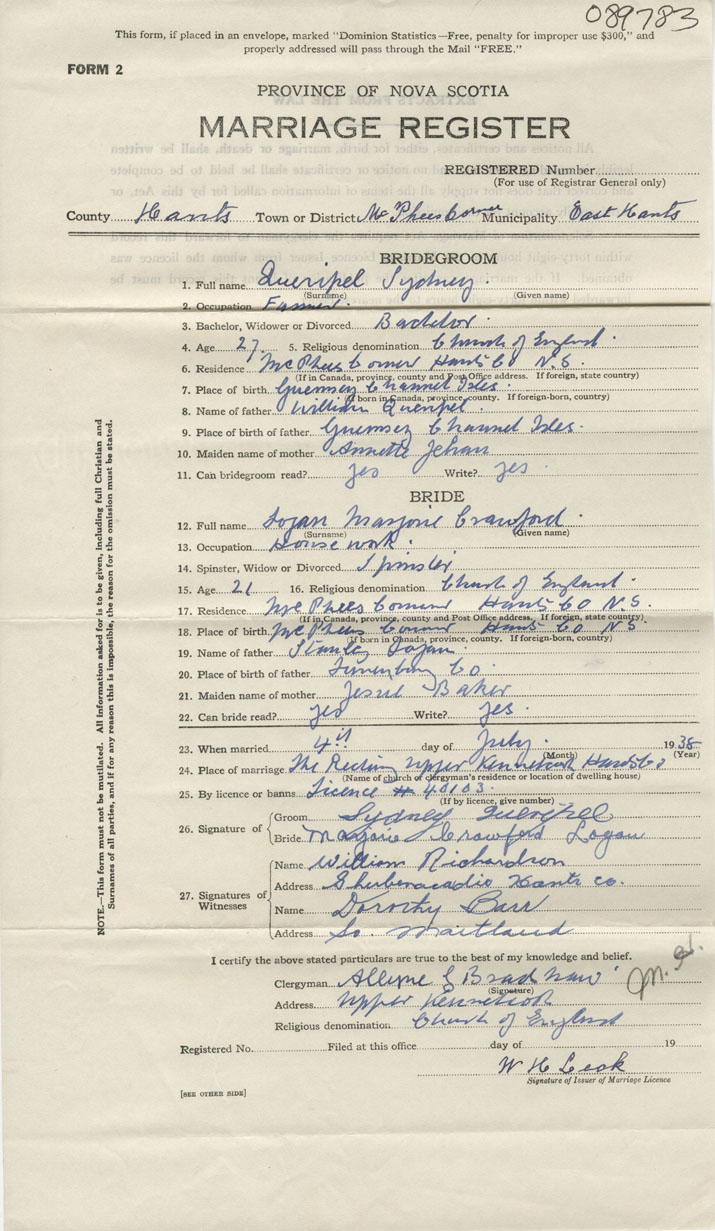 089783
This form, if placed in an envelope, marked "Dominion Statistics—Free, penalty for improper use $300," and
properly addressed will pass through the Mail "FREE."
FORM 2
PROVINCE OF NOVA SCOTIA
MARRIAGE REGISTER
REGISTERED Number
(For use of Registrar General only)
County Hants Town or District McPhees Corner Municipality East Hants
BRIDEGROOM
1. Full name Queripel Sydney
(Surname) (Given name)
2. Occupation Farmer
3. Bachelor, Widower or Divorced Bachelor
4. Age 27 5. Religious denomination Church of England
6. Residence McPhees Corner Hants Co N.S.
(If in Canada, province, county and Post Office address. If foreign, state country)
7. Place of birth Guernsey Channel Isles
(If born in Canada, province, county. If foreign-born, country)
8. Name of father William Queripel
9. Place of birth of father Guernsey Channel Isles
10. Maiden name of mother Annette Jehan
11. Can bridegroom read? yes Write? yes
BRIDE
12. Full name Logan Marjorie Crawford
(Surname) (Given name)
13. Occupation House work
14. Spinster, Widow or Divorced Spinster
15. Age 21 16. Religious denomination Church of England
17. Residence McPhees Corner Hants Co N.S.
(If in Canada, province, county and Post Office address. If foreign, state country)
18. Place of birth McPhees Corner Hants Co N.S.
(If born in Canada, province, county. If foreign-born, country)
19. Name of father Stanley Logan
20. Place of birth of father Lunenburg Co
21. Maiden name of mother Jessie Baker
22. Can bride read? yes Write? yes
23. When married 4th day of July 1938
(Month) (Year)
24. Place of marriage The Rectory Upper Kennetcook Hants Co
(Name of church or clergyman's residence or location of dwelling house)
25. By licence or banns Licence # 40103
(If by licence, give number)
26. Signature of
Groom Sydney Queripel
Bride Marjorie Crawford Logan
27. Signatures of Witnesses
Name William Richardson
Address Shubenacadie Hants co.
Name Dorothy Barr
Address So. Maitland
I certify the above stated particulars are true to the best of my knowledge and belief.
Clergyman Alleyne G Bradshaw
(Signature)
Address Upper Kennetcook
Religious denomination Church of England
Registered No. Filed at this office day of 19
W H Leok
Signature of Issuer of Marriage Licence
[SEE OTHER SIDE]
NOTE.—This form must not be mutilated. All information asked for is to be given, including full Christian and
Surnames of all parties, and if for any reason this is impossible, the reason for the omission must be stated.